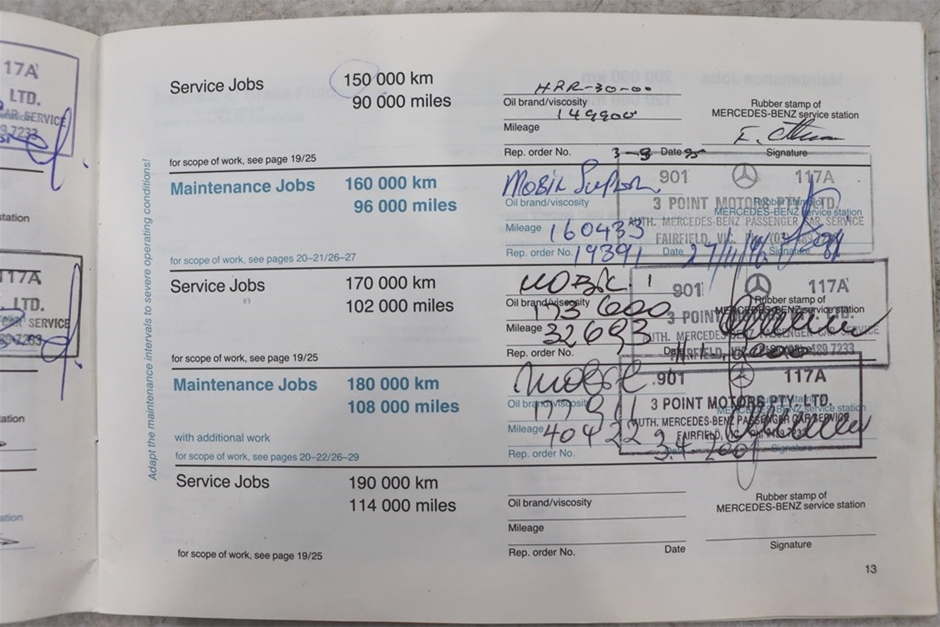 17A
LTD.
CAR SERVICE
489 7233
station
117A
LTD.
CAR SERVICE
489 7233
ation
ation
Adapt the maintenance intervals to severe operating conditions!
Service Jobs
150 000 km
90 000 miles
for scope of work, see page 19/25
HRR-30-00
Oil brand/viscosity
149900
Mileage
Rep. order No.
Date
Rubber stamp of
MERCEDES-BENZ service station
Signature
Maintenance Jobs
160 000 km
96 000 miles
for scope of work, see pages 20–21/26–27
Mobil
Oil brand/viscosity
Mileage 160433
Rep. order No. 19391
Date
MERCEDES-BENZ service station
Signature
901 117A
3 POINT MOTORS PTY. LTD.
AUTH. MERCEDES-BENZ PASSENGER CAR SERVICE
FAIRFIELD, VIC.
Service Jobs
170 000 km
102 000 miles
for scope of work, see page 19/25
Mobil 1
Oil brand/viscosity
173600
Mileage 32693
Rep. order No.
Date
Rubber stamp of
MERCEDES-BENZ service station
901 117A
3 POINT
Maintenance Jobs
180 000 km
108 000 miles
with additional work
for scope of work, see pages 20–22/26–29
Mobil
Oil brand/viscosity
Mileage 40422
Rep. order No.
3.4-2001
Signature
901 117A
3 POINT MOTORS PTY. LTD.
AUTH. MERCEDES-BENZ PASSENGER CAR SERVICE
FAIRFIELD, VIC.
Service Jobs
190 000 km
114 000 miles
for scope of work, see page 19/25
Oil brand/viscosity
Mileage
Rep. order No.
Date
Rubber stamp of
MERCEDES-BENZ service station
Signature
13